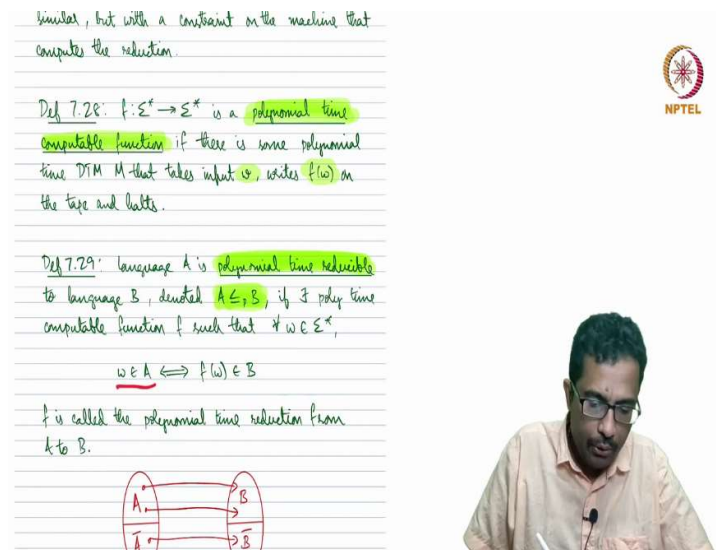 similar, but with a constraint on the machine that
computes the reduction.
Def 7.28: f: Σ* → Σ* is a polynomial time
computable function if there is some polynomial
time DTM M that takes input w, writes f(w) on
the tape and halts.
Def 7.29: Language A is polynomial time reducible
to language B, denoted A ≤p B, if ∃ poly time
computable function f such that ∀ w ∈ Σ*,
w ∈ A ⟺ f(w) ∈ B
f is called the polynomial time reduction from
A to B.
A B
Ā B̄
NPTEL